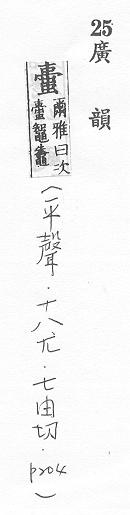 25 廣韻
爾雅曰次
鼅鼄
（平聲．十八尤．七由切．p204）